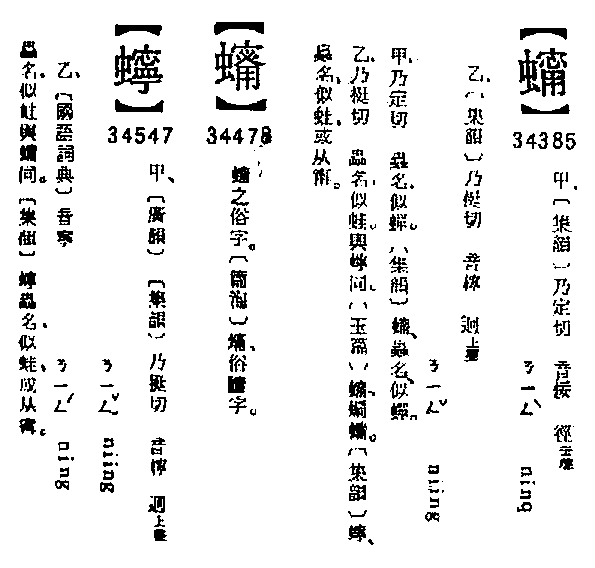 【】
34385
甲、〔集韻〕乃定切 音佞 徑去聲
ㄋㄧㄥˋ ning
乙、〔集韻〕乃挺切 音檸 迥上聲
ㄋㄧㄥˇ niing
甲乃定切 蟲名、似蟬。〔集韻〕、蟲名、似蟬。
乙乃挺切 蟲名、似蛙。與同。〔玉篇〕。〔集韻〕、
蟲名、似蛙、或从甯。
【】
34478
之俗字。〔篇海〕、俗字。
【】
34547
甲、〔廣韻〕〔集韻〕乃挺切 音檸 迥上聲
ㄋㄧㄥˇ niing
乙、〔國語詞典〕音寧
ㄋㄧㄥˊ ning
蟲名、似蛙與同。〔集韻〕蟲名、似蛙、或从甯。